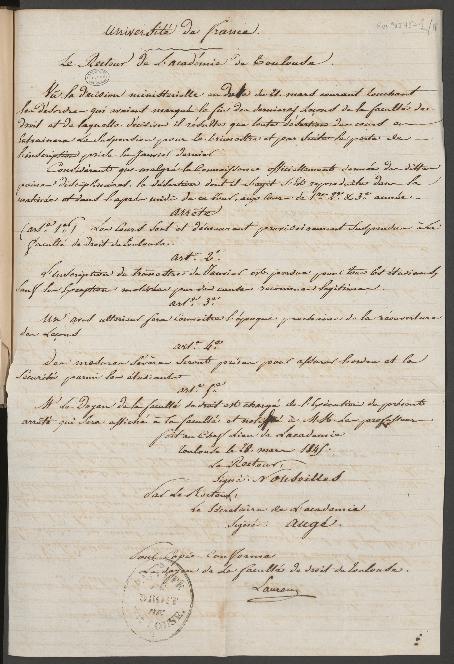 Université de france.
Le Recteur de l'académie de Toulouse
Vu la decision ministerielle en date du 21 mars courant touchant
les desordres qui avaient marqué la fin des derniers Leçons de la faculté de
droit et de laquelle decision il résulte que toute désertion des cours
entrainera la suspension pour le trimestre et par suite la perte de
l'inscription prise en Janvier dernier
Considérant que malgré la Connaissance officiellement donnée de cette
peine disciplinaire, la désertion dont il s'agit s'est reproduite dans la
matinée et dans l'après midi de ce jour, aux cours de 1ere 2e & 3e année
arrete
(art. 1er) Les cours sont et demeurent provisoirement suspendus à la
faculté de Droit de Toulouse.
art. 2e
L'inscription du trimestre de Janvier est perdue pour tous les étudiants
sauf les Exceptions motivées par des causes reconnues légitimes
art. 3e
un avis ultérieur fera connaitre l'époque prochaine de la reouverture
des Leçons
art. 4e
Des mesures sévères seront prises pour assurer l'ordre et la
sécurité parmi les étudiants
art. 5e
Mr le Doyen de la faculté de droit est chargé de l'Exécution du présent
arreté qui sera affiché à la faculté et notifié à MM. les professeurs
fait au chef lieu de l'academie
Toulouse le mars 1845
Le Recteur,
Signé: Nouseilles
Par le Recteur,
Le Secrétaire de l'academie
Signé: augé
Pour Copie Conforme
Le Doyen de la faculté de droit de Toulouse.
Laurens
FACULTÉ
DE
DROIT
DE
TOULOUSE